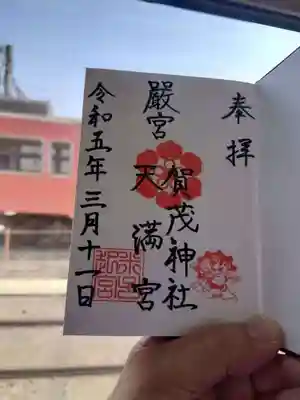 奉拝
賀茂神社
嚴宮
天満宮
令和五年三月十一日